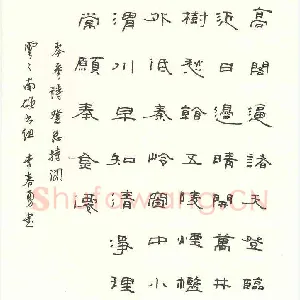 高閣逼諸天登臨
近日邊晴開萬井
樹愁看五陵煙檻
外低秦嶺窗中小
渭川早知清淨理
常願奉金僊
岑參詩登總持閣
雲之南 李春勇書
Shufawang.CN